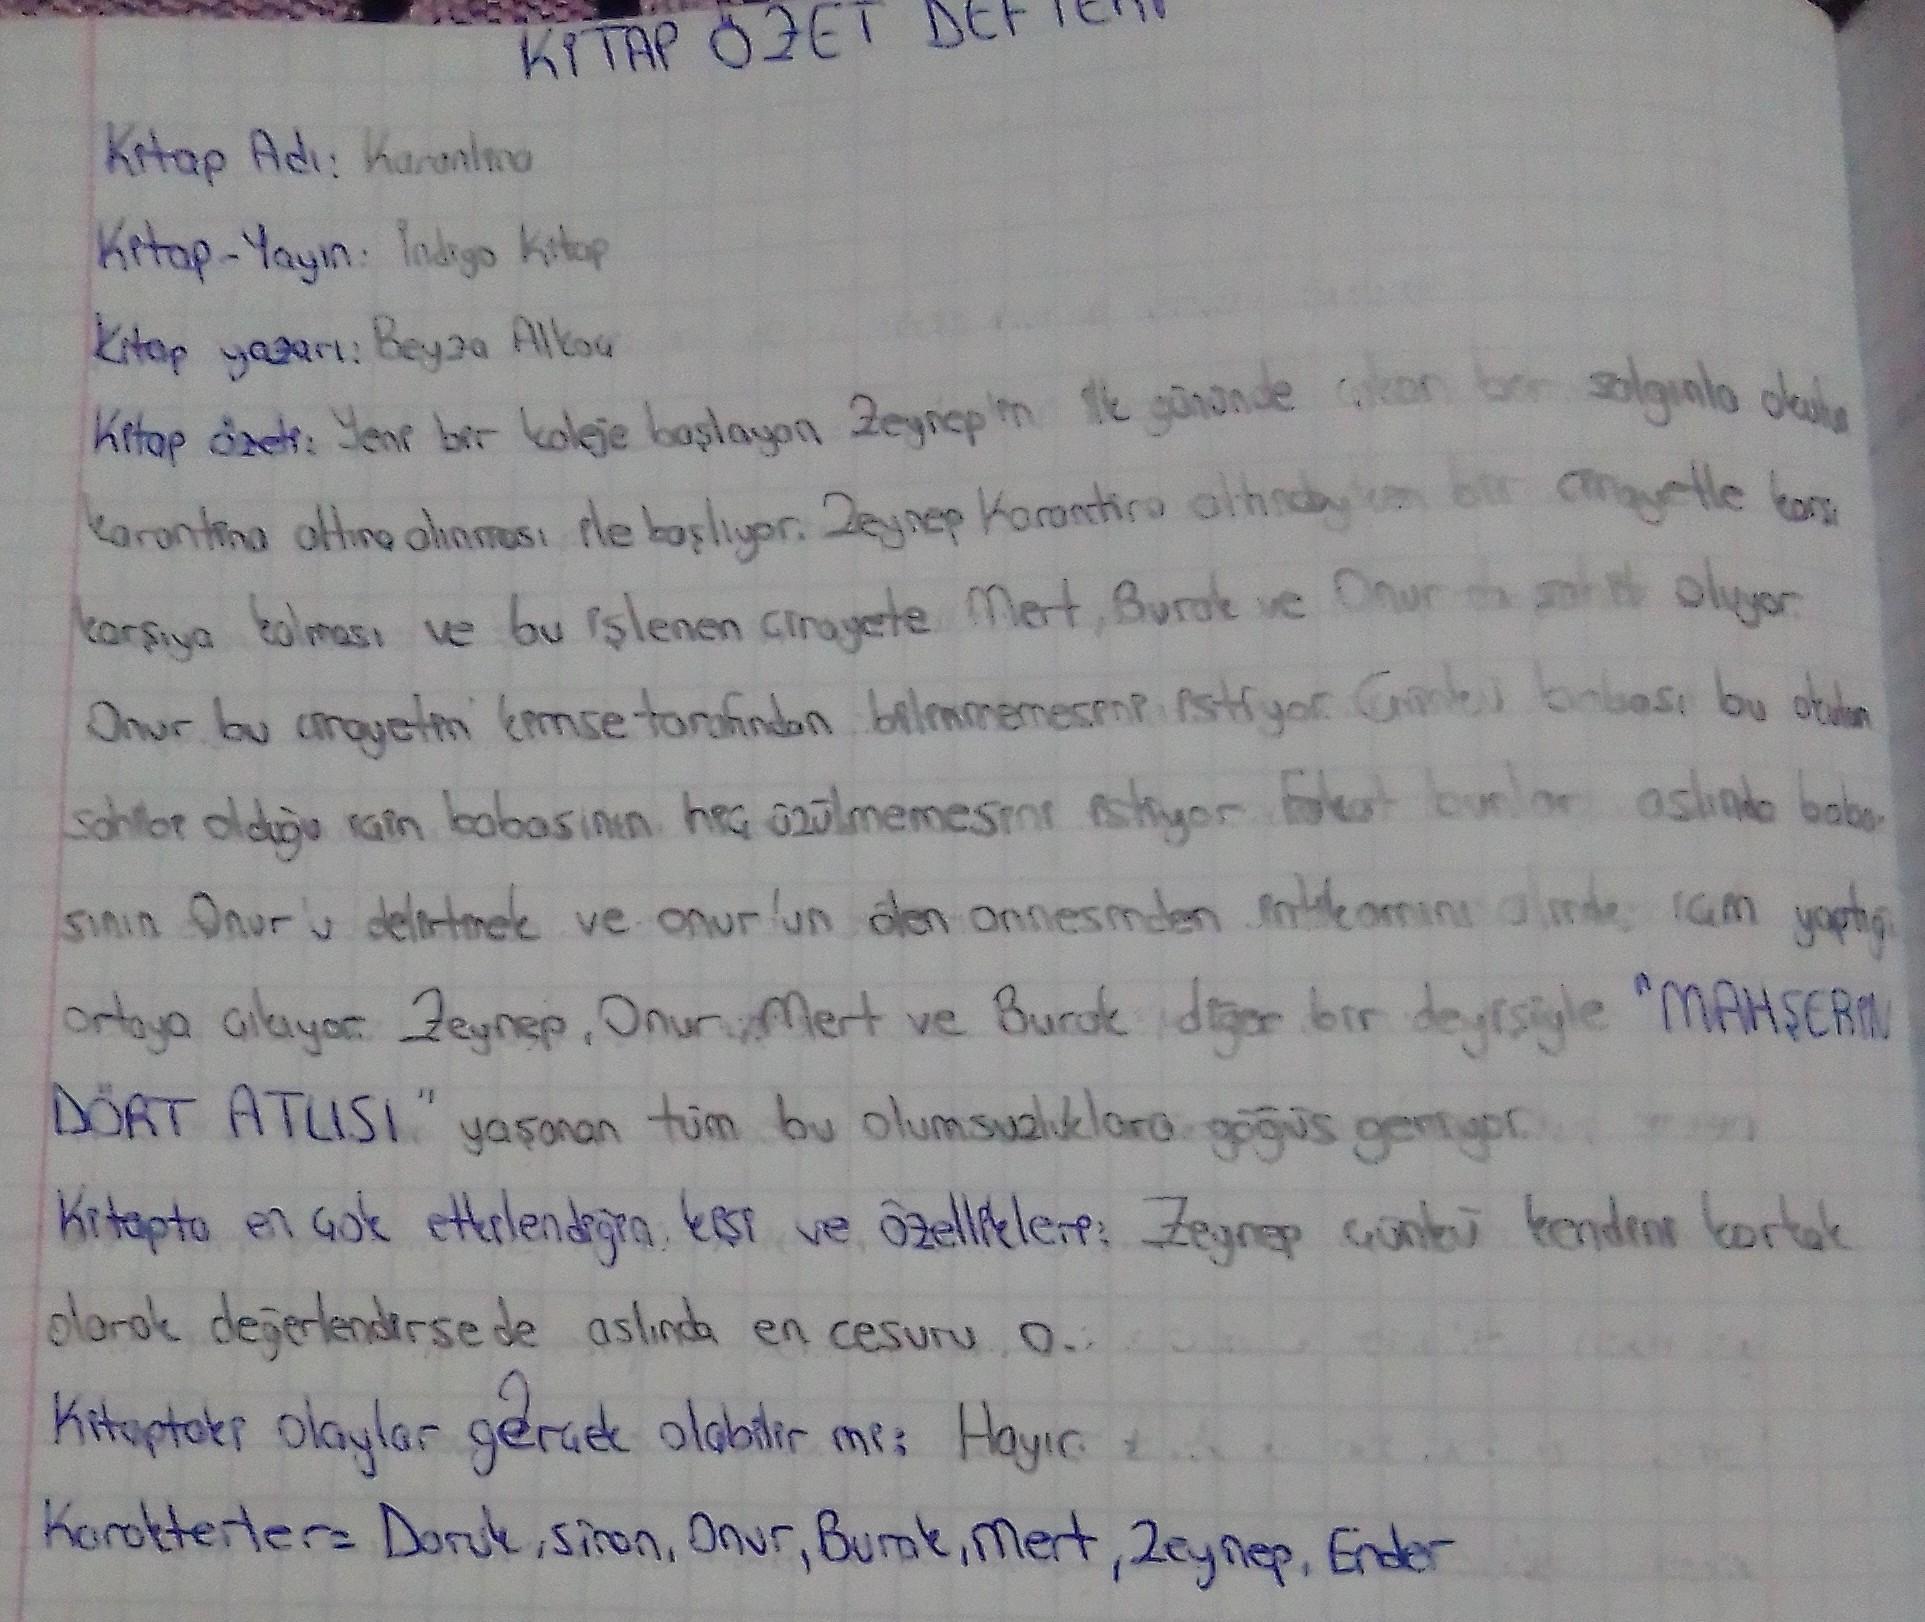 KİTAP ÖZET DEFTERİ
Kitap Adı: Karantina
Kitap-Yayın: İndigo Kitap
Kitap yazarı: Beyza Alkoç
Kitap özeti: Yeni bir koleje başlayan Zeynep'in ilk gününde çıkan bir salgınla okulun
karantina altına alınması ile başlıyor. Zeynep Karantina altındayken bir cinayetle karşı
karşıya kalması ve bu işlenen cinayete Mert, Burak ve Onur da şahit oluyor.
Onur bu cinayetin kimse tarafından bilinmemesini istiyor. Çünkü babası bu okulun
sahibi olduğu için babasının hiç üzülmemesini istiyor. Fakat bunlar aslında baba-
sının Onur'u delirtmek ve onur'un ölen annesinden intikamını almak için yaptığı
ortaya çıkıyor. Zeynep, Onur, Mert ve Burak diğer bir deyişiyle "MAHŞERİN
DÖRT ATLISI" yaşanan tüm bu olumsuzluklara göğüs geriyor.
Kitapta en çok etkilendiğin kişi ve özellikleri: Zeynep çünkü kendini korkak
olarak değerlendirsede aslında en cesuru o.
Kitaptaki olaylar gerçek olabilir mi: Hayır.
Karakterler= Doruk, Siran, Onur, Burak, Mert, Zeynep, Ender